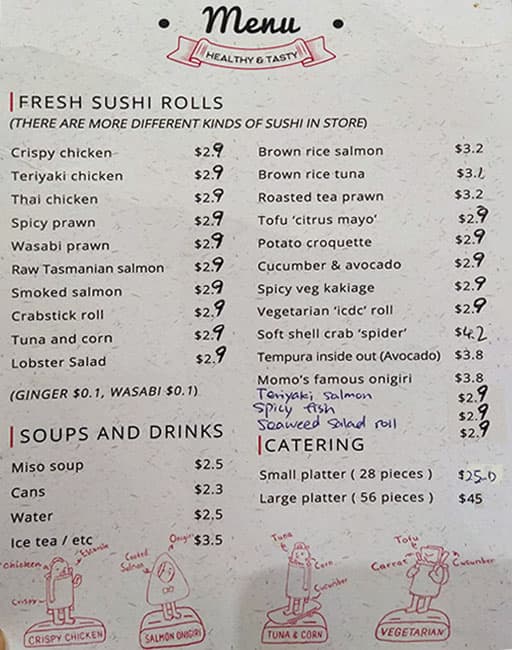 Menu
HEALTHY & TASTY
FRESH SUSHI ROLLS
(THERE ARE MORE DIFFERENT KINDS OF SUSHI IN STORE)
Crispy chicken $2.9
Teriyaki chicken $2.9
Thai chicken $2.9
Spicy prawn $2.9
Wasabi prawn $2.9
Raw Tasmanian salmon $2.9
Smoked salmon $2.9
Crabstick roll $2.9
Tuna and corn $2.9
Lobster Salad $2.9
(GINGER $0.1, WASABI $0.1)
Brown rice salmon $3.2
Brown rice tuna
Roasted tea prawn $3.2
Tofu 'citrus mayo' $2.9
Potato croquette $2.9
Cucumber & avocado $2.9
Spicy veg kakiage $2.9
Vegetarian 'icdc' roll $2.9
Soft shell crab 'spider' $4.2
Tempura inside out (Avocado) $3.8
Momo's famous onigiri $3.8
Teriyaki salmon $2.9
Spicy fish $2.9
Seaweed Salad roll $2.9
SOUPS AND DRINKS
Miso soup $2.5
Cans $2.3
Water $2.5
Ice tea / etc $3.5
CATERING
Small platter ( 28 pieces )
Large platter ( 56 pieces ) $45
Chicken
Crispy
CRISPY CHICKEN
Cooked
Salmon
Onigiri
SALMON ONIGIRI
Tuna
Corn
Cucumber
TUNA & CORN
Tofu
Carrot
Cucumber
VEGETARIAN